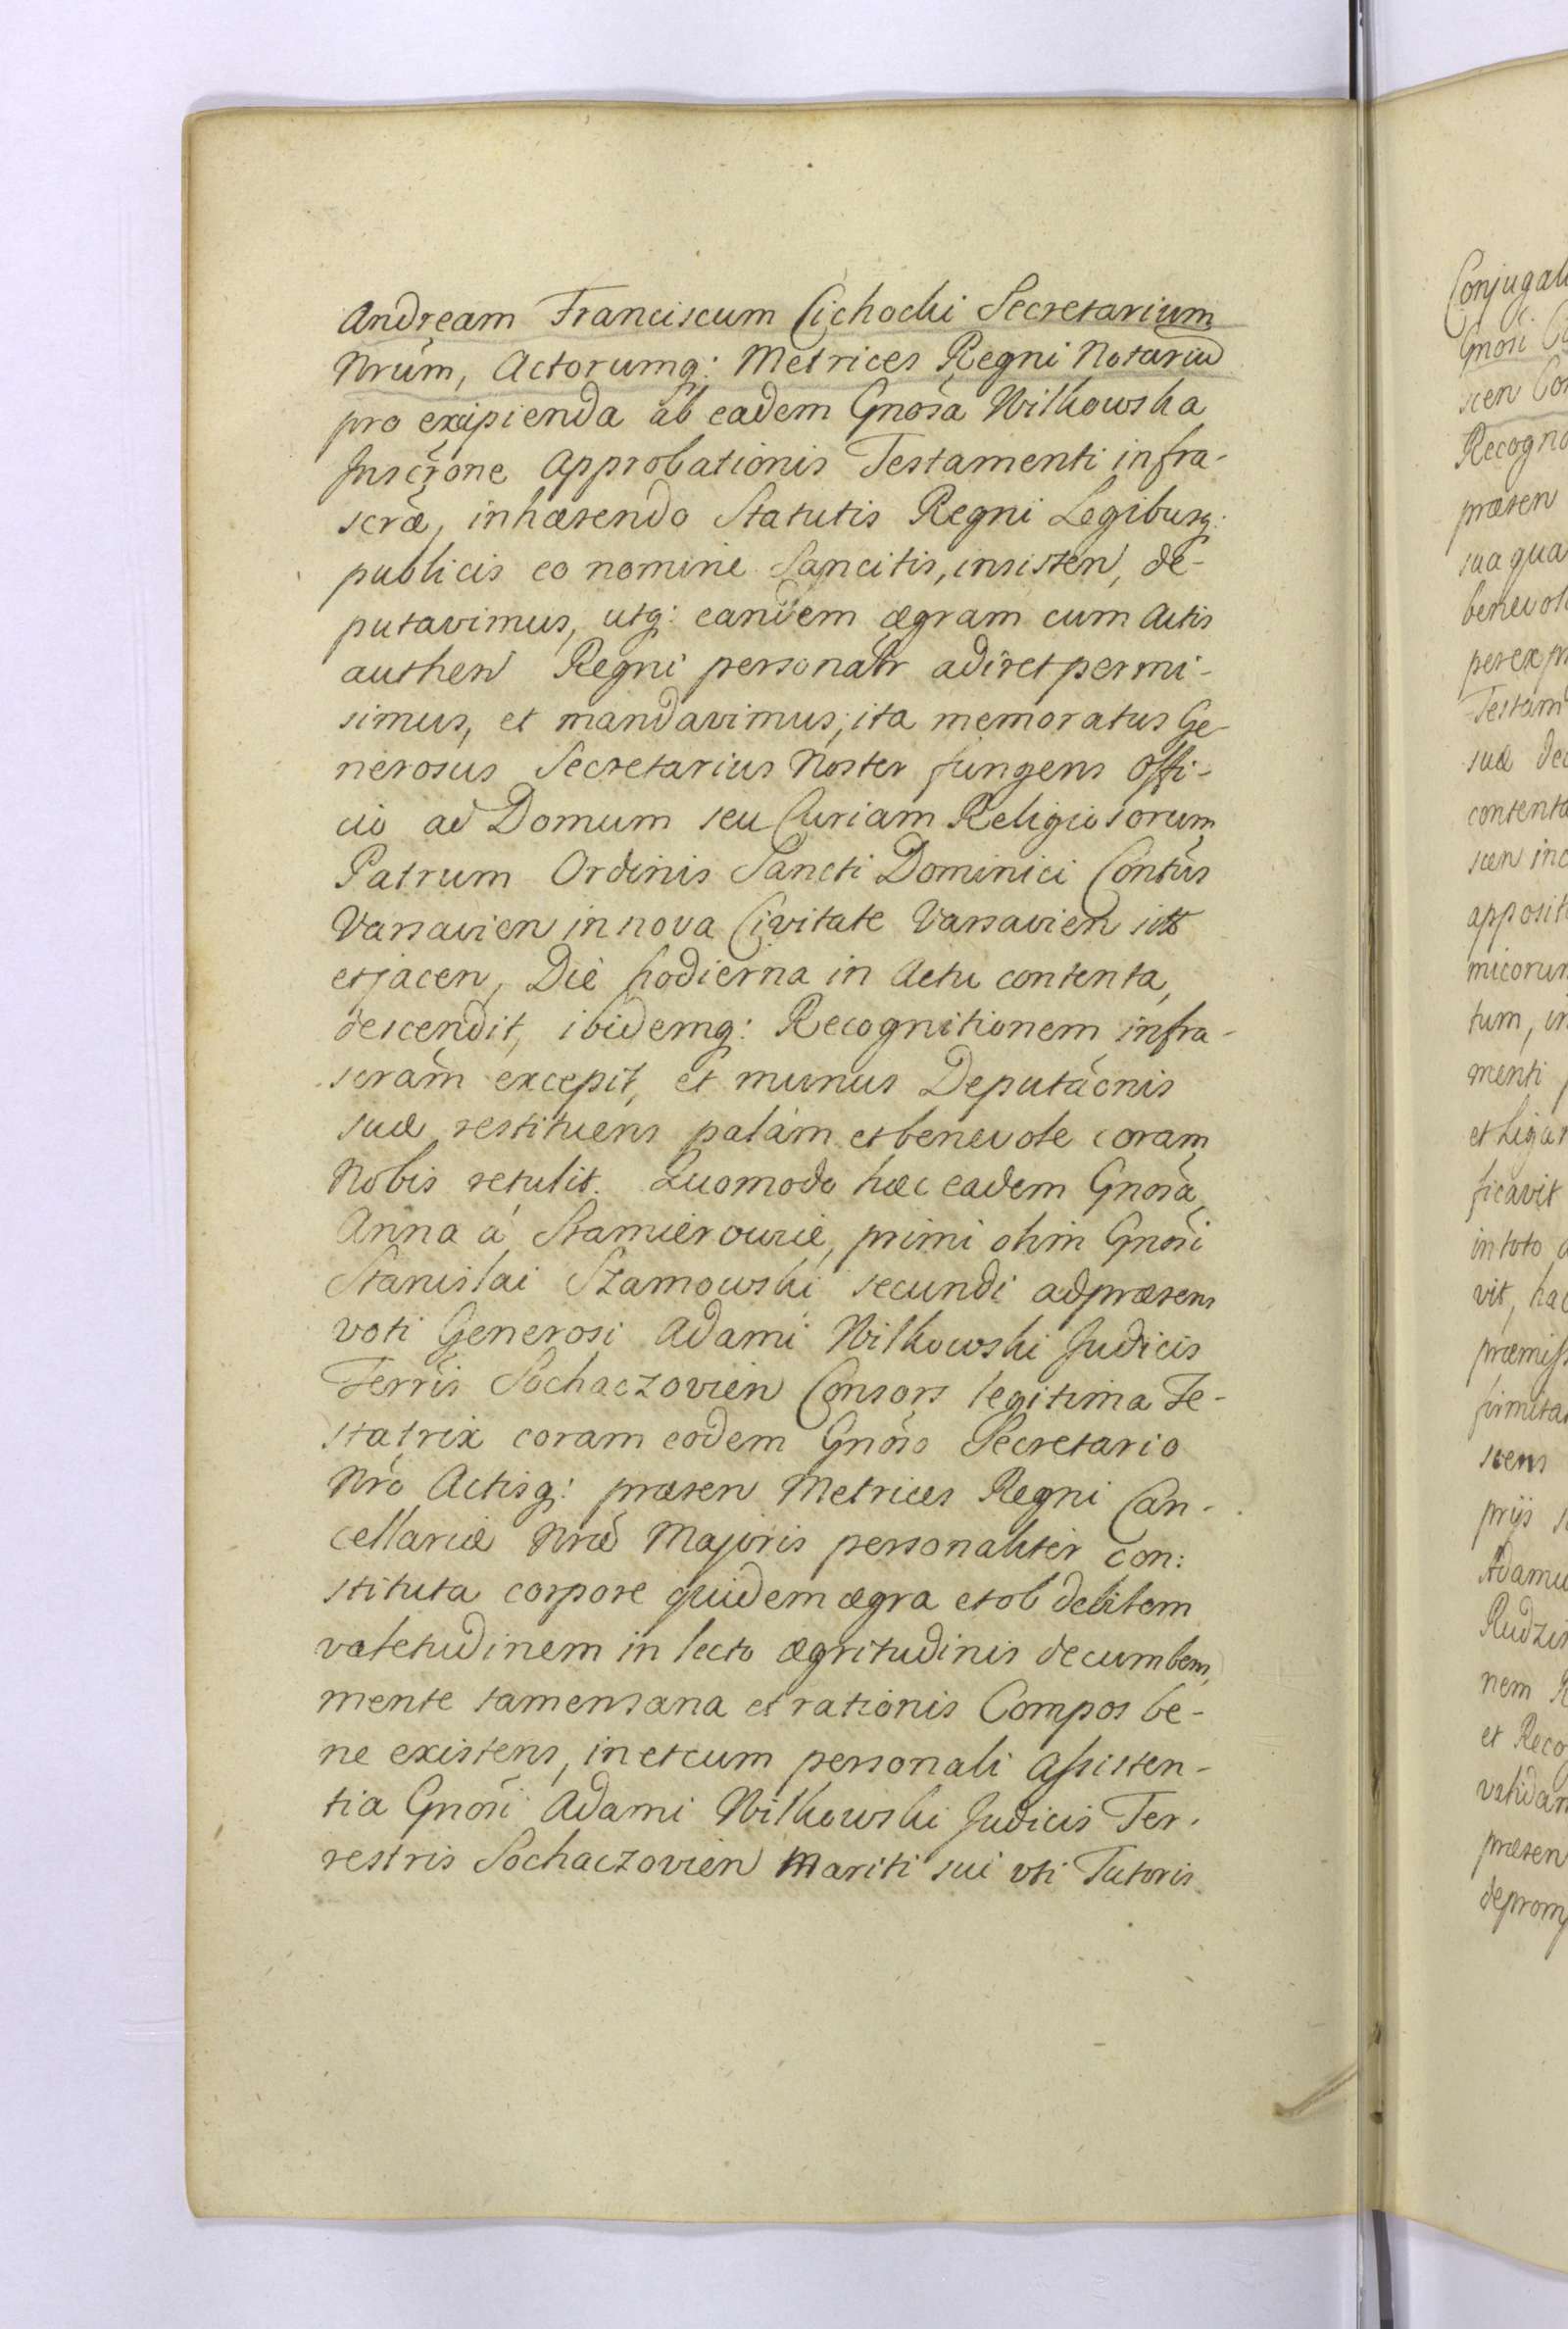 Andream Franciscum Cichocki Secretarium
Nrum, Actorumq: Metrices Regni Notariu
pro excipienda ab eadem Gnosa Wilkowska
Inscrone Approbationis Testamenti infra-
scræ, inhærendo Statutis Regni Legibusq:
publicis eo nomine Sancitis, insisten, de-
putavimus, utq: eandem ægram cum Actis
authen Regni personalr adiret permi-
simus, et mandavimus, ita memoratus Ge-
nerosus Secretarius Noster fungens Offi-
cio ad Domum seu Curiam Religiosorum
Patrum Ordinis Sancti Dominici Contus
Varsavien in nova Civitate Varsavien
et jacen, Die hodierna in Actu contenta,
descendit, ibidemq: Recognitionem infra-
scram excepit, et munus Deputaonis
suæ restituens palam et benevole coram
Nobis retulit. Quomodo hæc eadem Gnosa
Anna a primi olim Gnosi
Stanislai Szamowski secundi ad præsens
voti Generosi Adami Wilkowski Judicis
Terris Sochaczovien Consors legitima Te-
statrix coram eodem Gnoso Secretario
Nro Actisq: præsen Metrices Regni Can-
cellariæ Nræ Majoris personaliter con:
stituta corpore quidem ægra et ob debilem
valetudinem in lecto ægritudinis decumbens,
mente tamen sana et rationis Compos be-
ne existens, in et cum personali assisten-
tia Gnosi Adami Wilkowski Judicis Ter-
restris Sochaczovien Mariti sui uti Tutoris
Gnosi
Recogno
præsen
sua qua
benevol
per expr
Testam
suæ dec
contenta
scen inc
apposit
micorum
tum, in
menti
et Ligar
ficavit
in toto
vit, hac
præmiss
firmita
scens
prijs
Adamu
nem
et Reco
validan
præsen
deprom